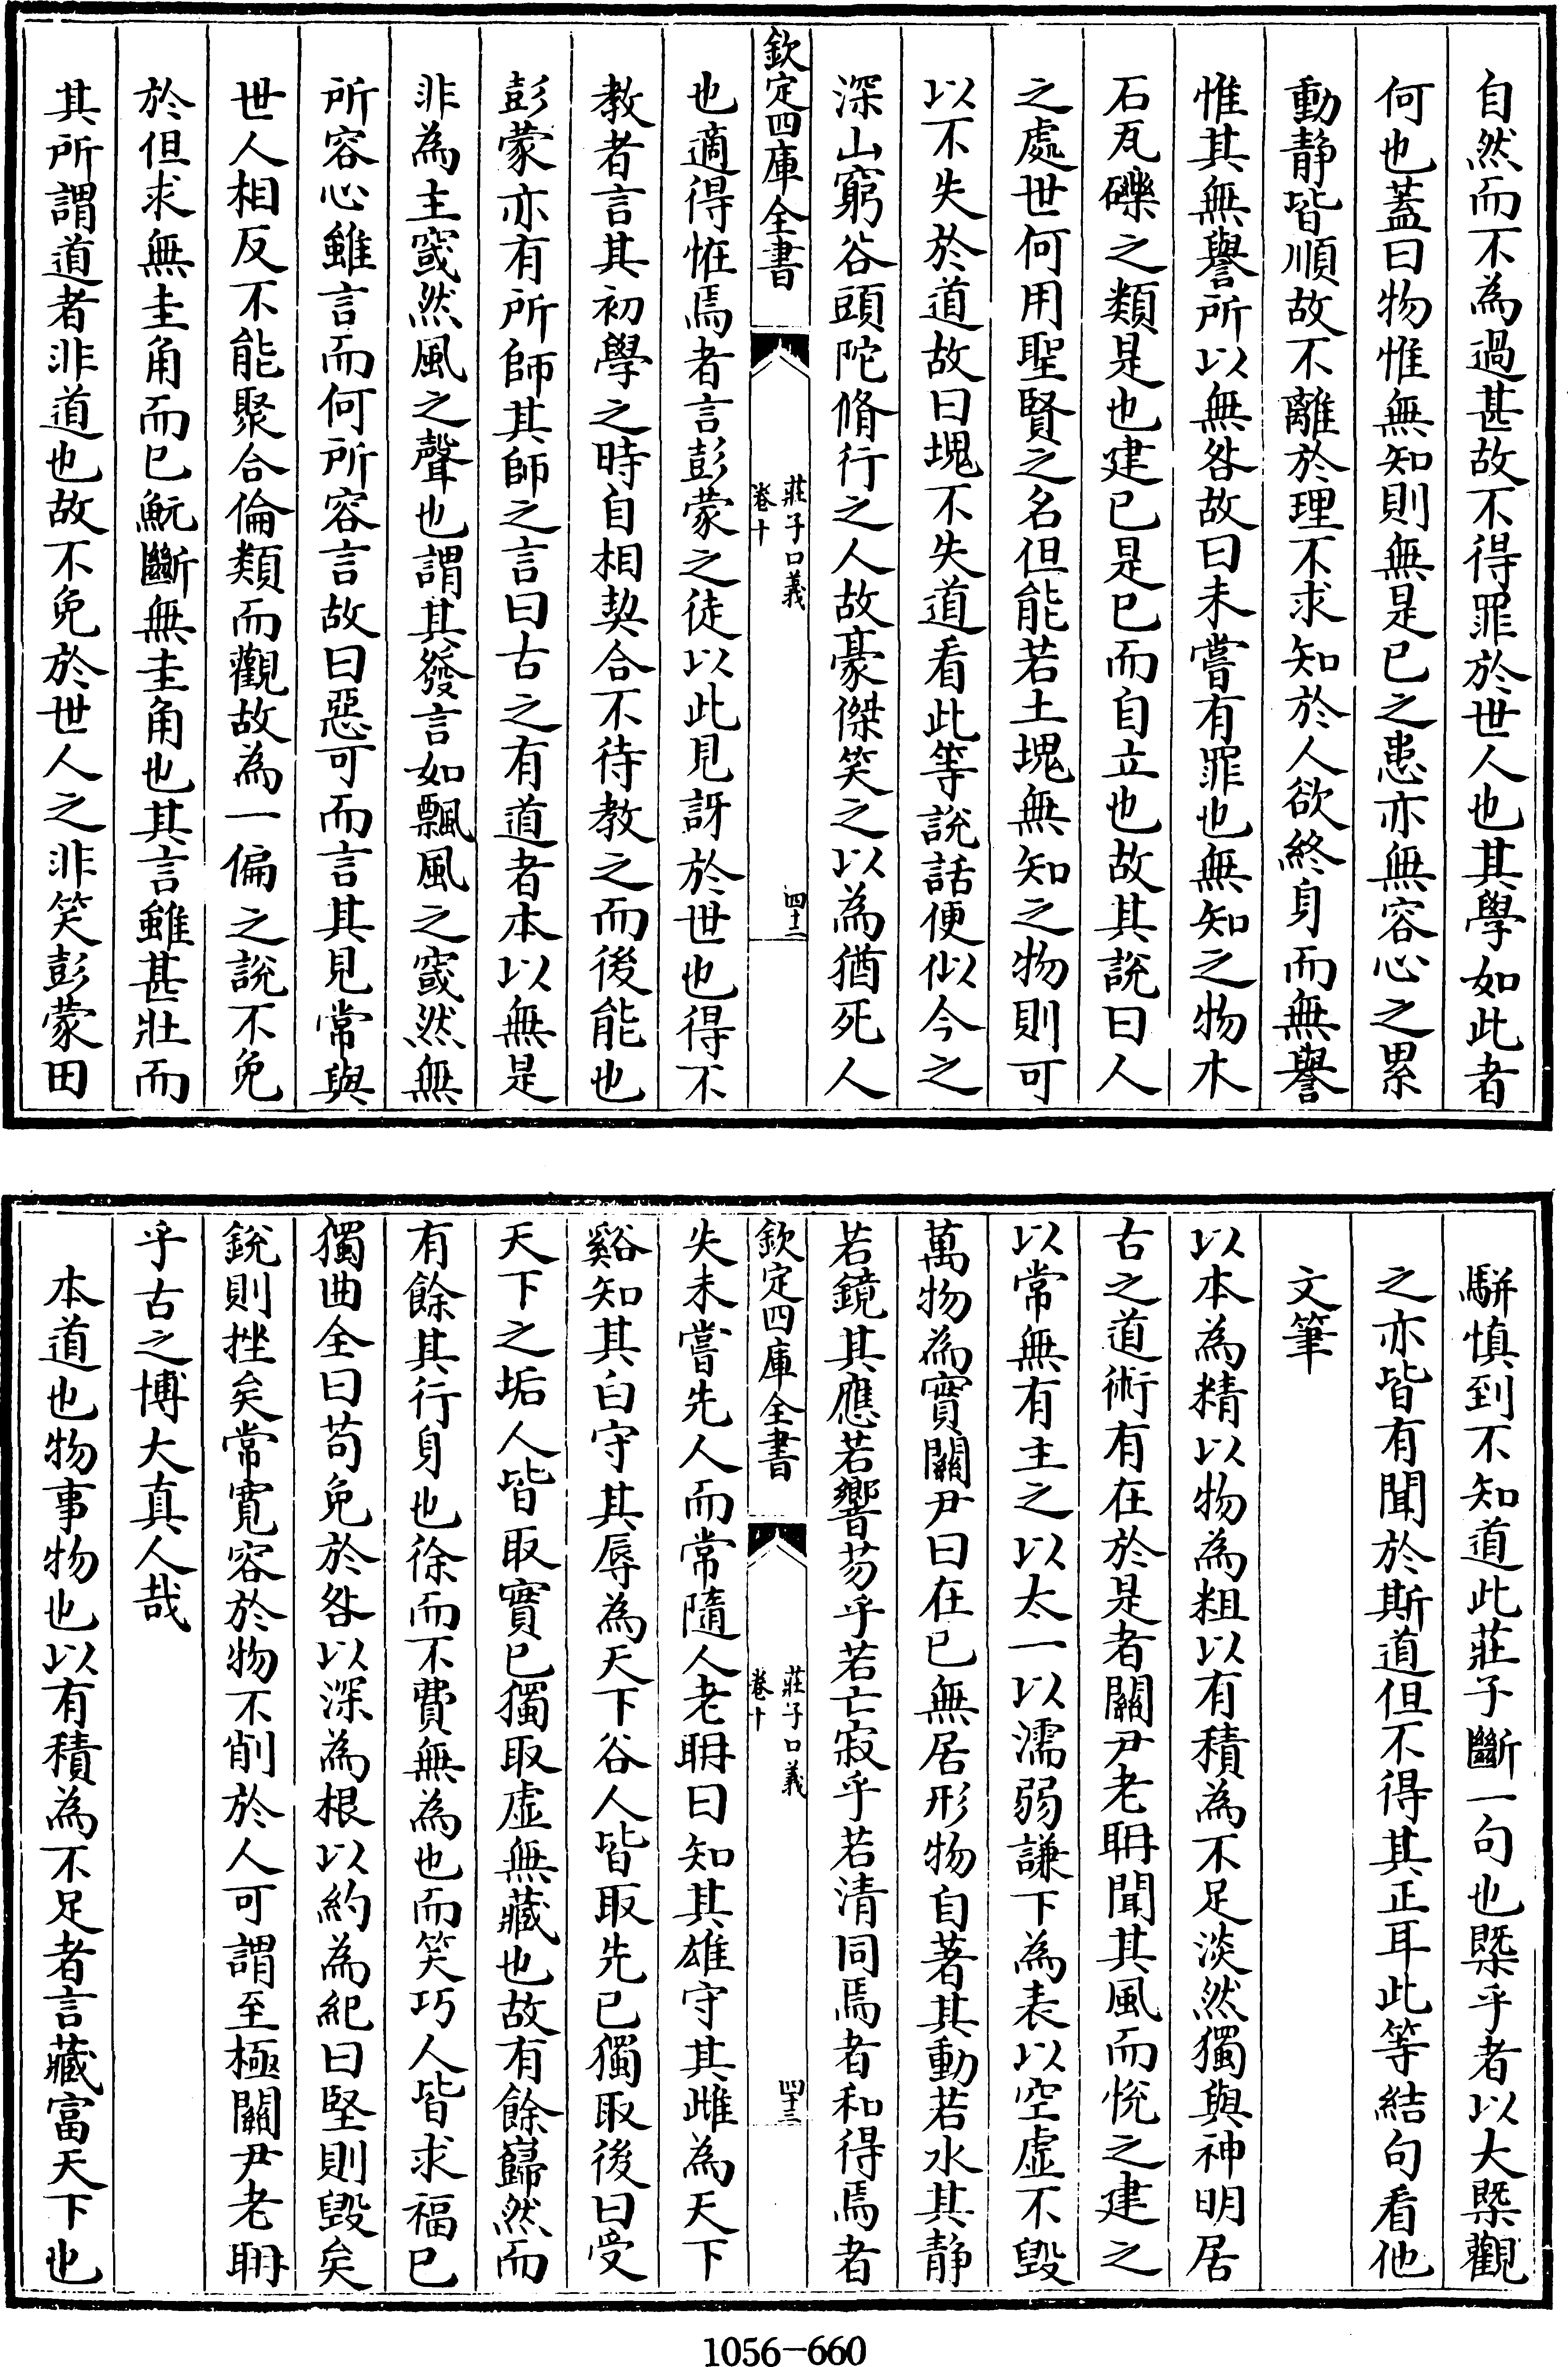 自然而不為過甚故不得罪於世人也其學如此者
何也蓋曰物惟無知則無是已之患亦無容心之累
動靜皆順故不離於理不求知於人欲終身而無譽
惟其無譽所以無咎故曰未嘗有罪也無知之物木
石瓦礫之類是也建已是已而自立也故其說曰人
之處世何用聖賢之名但能若土塊無知之物則可
以不失於道故曰塊不失道看此等說話便似今之
深山窮谷頭陀脩行之人故豪傑笑之以為猶死人
欽定四庫全書
莊子口義
卷十
四十二
也適得恠焉者言彭蒙之徒以此見訝於世也得不
教者言其初學之時自相契合不待教之而後能也
彭蒙亦有所師其師之言曰古之有道者本以無是
非為主窢然風之聲也謂其發言如飄風之窢然無
所容心雖言而何所容言故曰惡可而言其見常與
世人相反不能聚合倫類而觀故為一偏之說不免
於但求無圭角而已魭斷無圭角也其言雖甚壯而
其所謂道者非道也故不免於世人之非笑彭蒙田
駢慎到不知道此莊子斷一句也槩乎者以大槩觀
之亦皆有聞於斯道但不得其正耳此等結句看他
文筆
以本為精以物為粗以有積為不足淡然獨與神明居
古之道術有在於是者關尹老聃聞其風而悅之建之
以常無有主之以太一以濡弱謙下為表以空虛不毀
萬物為實關尹曰在已無居形物自著其動若水其靜
若鏡其應若響芴乎若亡寂乎若清同焉者和得焉者
欽定四庫全書
莊子口義
卷十
四十三
失未嘗先人而常隨人老聃曰知其雄守其雌為天下
谿知其白守其辱為天下谷人皆取先已獨取後曰受
天下之垢人皆取實已獨取虛無藏也故有餘巋然而
有餘其行身也徐而不費無為也而笑巧人皆求福已
獨曲全曰苟免於咎以深為根以約為紀曰堅則毀矣
銳則挫矣常寬容於物不削於人可謂至極關尹老聃
乎古之博大真人哉
本道也物事物也以有積為不足者言藏富天下也
1056-660